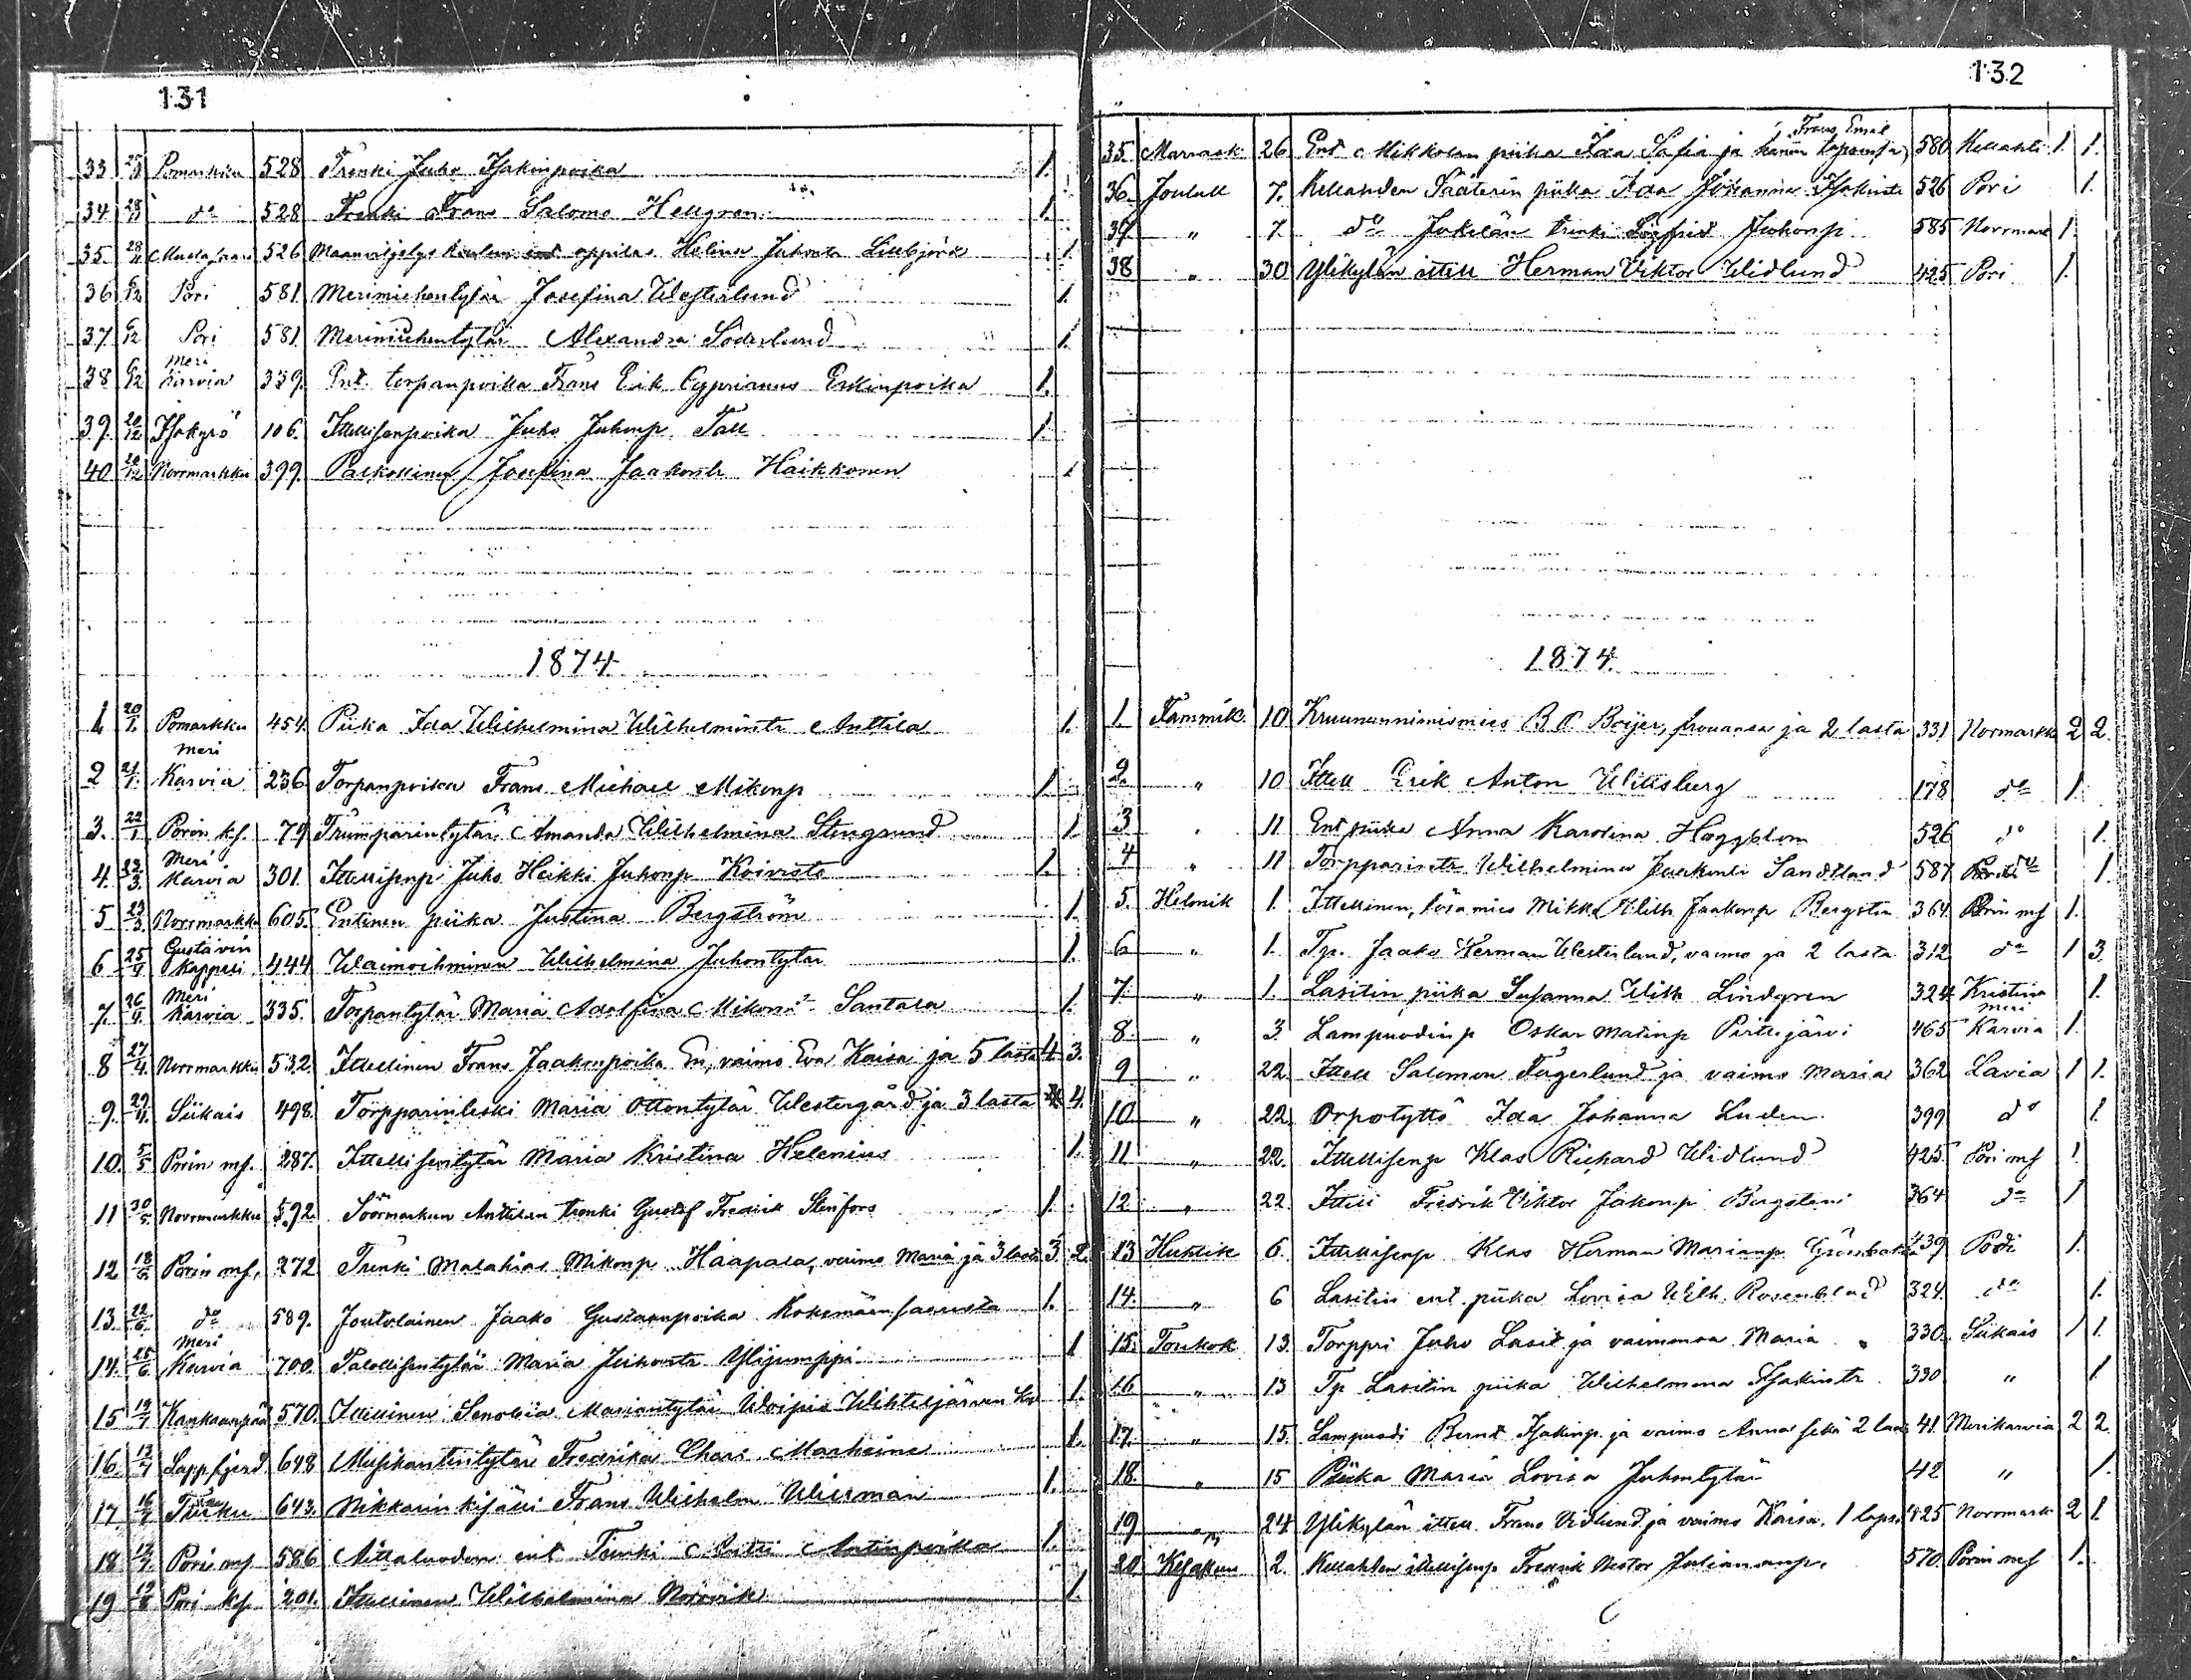 131
33 25/11 Pomarkku 528 Trenki Juho Isakinpoika 1.
34 28/11 do 528 Trenki Frans Salomo Hellgren 1.
35. 28/11 Mustasaari 526 Maanviljelys koulun ent oppilas Helina Juhonta Liubjörk 1
36 6/12 Pori 581. Merimiehentytär Josefina Westerlund 1.
37. 6/12 Pori 581. Merimiehentytär Alexandra Söderlund 1.
38 6/12 Meri Karvia 339. Ent. torpanpoika Frans Erik Cyprianus Erkinpoika 1.
39. 20/12 Isokyrö 106. Itellisenpoika Juho Juhonp Tall 1.
40 20/12 Norrmarkku 399. Palkollinen Josefina Jaakontr Haikkonen 1
1874.
1. 20/1. Pomarkku 454. Piika Ida Wilhelmina Wilhelmintr Anttila 1.
2 21/1. Meri Karvia 236 Torpanpoika Frans Michael Mikonp 1
3. 22/1 Porin ks. 79 Trumparintytär Amanda Wilhelmina Stengrund 1.
4. 23/3. Meri Karvia 301. Itellisenp Juho Heikki Juhonp Koivisto 1.
5 23/3. Norrmarkku 605. Entinen piika Justina Bergström 1
6 25/4 Gustavin kappeli 444 Waimoihminen Wilhelmina Juhontytär 1.
7. 26/4. Meri Karvia 335. Torpantytär Maria Adolfina Mikont Santala 1.
8 27/4. Norrmarkku 532. Itellinen Frans Jaakonpoika En, vaimo Eva Kaisa ja 5 lasta 4 3.
9. 29/4. Siikais 498. Torpparinleski Maria Ottontytär Westergård ja 3 lasta 4.
10. 5/5 Porin mf. 287. Itellisentytär Maria Kristina Helenius 1.
11 30/5 Norrmarkku 592 Söörmarkun Anttilan trenki Gustaf Fredrik Stenfors 1.
12 18/6 Porin mf. 272 Trenki Malakias Mikonp Haapala, vaimo Maria ja 3 lasta 3. 2
13. 22/6. do 589. Joutolainen Jaako Gustavinpoika Kokemäen saaresta 1.
14. 25/6 Meri Karvia 700. Talollisentytär Maria Juhontr Ylijumppi 1
15 12/7 Kankaanpää 570. Itellinen Senobia Mariantytär Woipio Wihteljärven 1.
16. 12/7 Lappfjerd 648 Musikantintytär Fredrika Charl. Marheine 1.
17. 16/7 Turku 643. Nikkarin kisälli Frans Wilhelm Wierman 1.
18 12/7 Porin mf 586 Aittaluodon ent Trenki Antti Antinpoika 1.
19 12/8 Pori kf. 201. Itellinen Wilhelmina Norrvik 1.
132
35. Marrask. 26 Ent Mikkolan piika Ida Sofia ja hänen lapsensa Frans Emil 580 Kellahti 1. 1.
36. Jouluk 7. Kellahden Sääterin piika Ida Johanna Isakintr 526 Pori 1.
37 " 7. do Jokelän trenki Sigfrid Juhonp 585 Norrmark 1.
38 " 30 Ylikylän itell Herman Viktor Widlund 425 Pori 1.
1874.
1. Tammik. 10 Kruununnimismies B. O. Boijer, frouansa ja 2 lasta 331 Norrmarkk 2 2.
2 " 10 Itell Erik Anton Willsberg 178 do 1.
3 " 11 Ent piika Anna Karolina Häggblom 526 do 1.
4 " 11 Torpparintr Wilhelmina Jaakonti Sandstrand 587 do 1.
5. Helmik 1. Itellinen, lösamies Mikko Wilh Jaakonp Bergsten 364 Porin mf 1.
6 " 1. Tp. Jaako Herman Westerlund, vaimo ja 2 lasta 312 do 1 3.
7. " 1. Lasitin piika Susanna Wilh Lindgren 324 Kristina 1.
8. " 3. Lampuodinp Oskar Matinp Piritujärvi 465 Meri Karvia 1.
9 " 22 Itell Salomon Fagerlund ja vaimo Maria 362 Lavia 1 1.
10 " 22. Orpotyttö Ida Johanna Luden 399 do 1.
11 " 22. Itellisenp Klas Richard Widlund 425 Pori mf 1.
12. " 22. Itell Fredrik Viktor Jakonp Bergsteni 364 do 1
13 Huhtik 6. Itellisenp Klas Herman Marianp 439 Pori 1.
14. " 6 Lasitin ent. piika Lovisa Wilh. Rosenblad 324 do 1.
15. Toukok 13. Torppri Juho Lasit ja vaimonsa Maria 330. Siikais 1 1.
16 " 13 Tp Lasitin piika Wilhelmina Isakintr 330 " 1
17. " 15. Lampuodi Bernt Isakinp ja vaimo Anna sekä 2 lasta 41. Merikarvia 2 2.
18. " 15 Piika Maria Lovisa Juhontytär 42 " 1.
19 " 24. Ylikylän itell. Frans Vidlund ja vaimo Kaisa, 1 lapsi 425 Norrmark 2 1.
20 Kesäkuu 2. Kellahden itellisenp Fredrik Nestor Juliananp. 570. Porin mf 1.